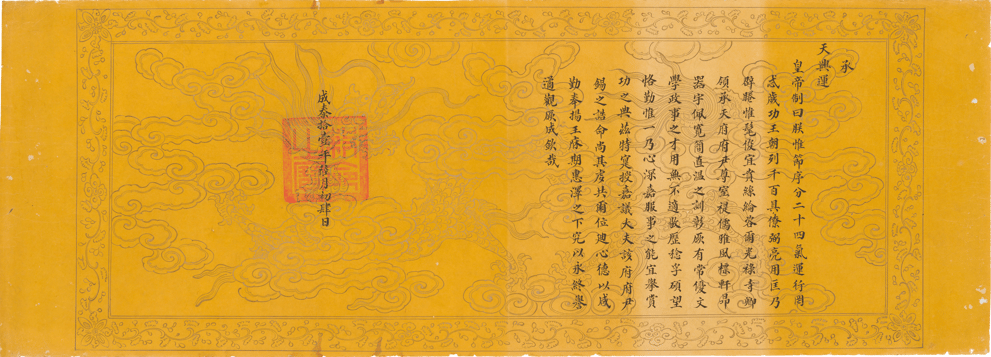 承
天興運
皇帝制曰朕惟節序分二十四氣運行周
歲功王朝列千百具僚弼亮用匡乃
辟睠惟髦俊宜賁絲綸咨爾光祿寺卿
領承天府府尹尊室禔儒雅風標軒昂
器宇佩寬簡直溫之訓彰厥有常優文
學政事之才用無不適歇歷稔孚碩望
恪勤惟一乃心深嘉服事之能宜舉賞
功之典茲特寔授嘉議大夫該府府尹
錫之誥命尚其虔共爾位迪心德以成
勤奉揚王庥期惠澤之下究以永終譽
遹觀厥成欽哉
成泰拾壹年 月初肆日